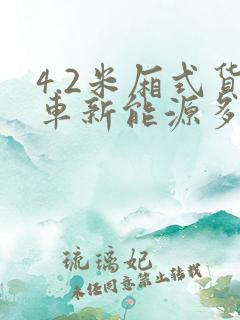 4.2米厢式货
车新能源多
琉璃妃
未任同意禁止转载